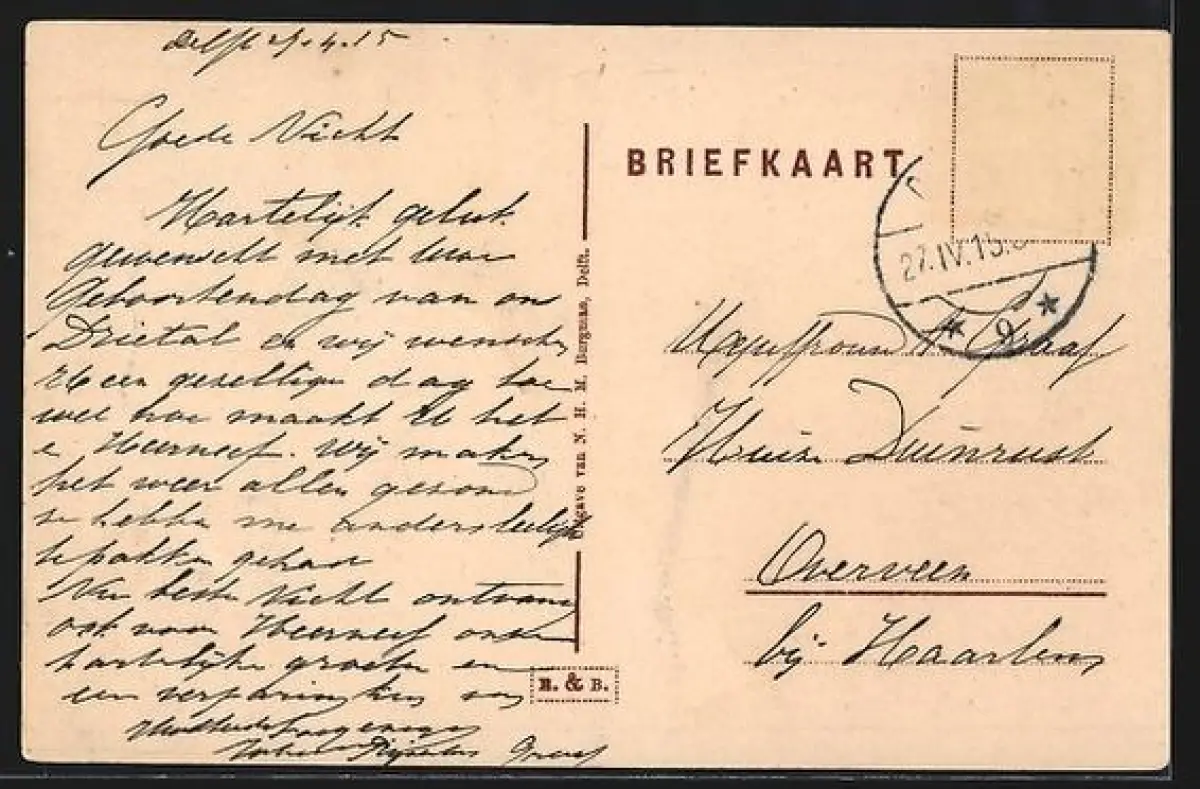 Delft 4.15
Goede Nicht
Hartelijk geluk
gewenscht met uwe
Geboortendag van ons
Drietal en wij wenschen
U een gezellige dag toe
wel hoe maakt U het
en Heerneef. Wij maken
het weer allen gezond
ze hebben me anders leelijk
te pakken gehad
Nu beste Nicht ontvang
ook voor Heerneef onze
hartelijke groeten en
een verjaringskus van
Graaf
Uitgave van N. H. M. Bergman, Delft.
& B.
BRIEFKAART
27.IV.15
9
Mejuffrouw Graaf
Huize Duinrust
Overveen
bij Haarlem